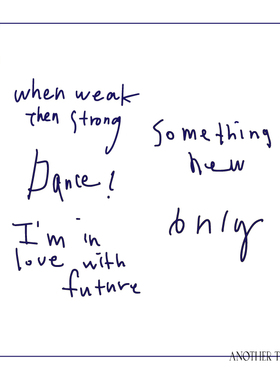 when weak
then strong
Something
new
Dance!
only
I'm in
love with
future
ANOTHER T